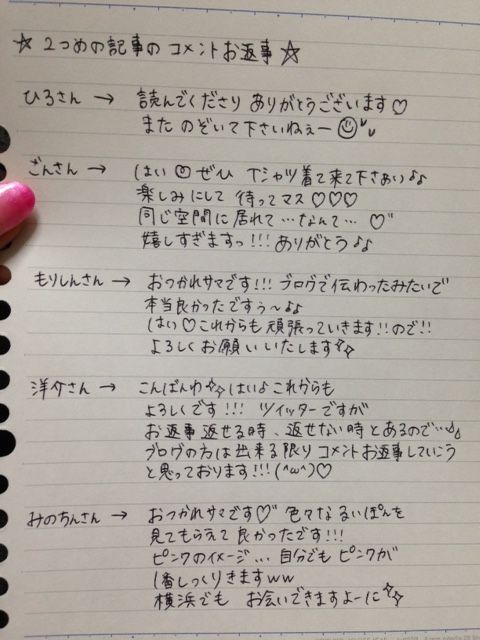 ☆ 2つめの記事の コメントお返事 ☆
ひろさん → 読んでくださり ありがとうございます♡
また のぞいて下さいねぇー
ごんさん → はい ぜひ Tシャツ着て来て下さぁい♪♪
楽しみにして 待ってマス♡♡♡
同じ空間に居れて…なんて…♡
嬉しすぎますっ!!! ありがとう♪♪
もりしんさん → おつかれサマです!!! ブログで伝わったみたいで
本当良かったですぅ〜♪♪
はい♡これからも 頑張っていきます!!ので!!
よろしくお願いいたします
洋介さん → こんばんわ はい♪ これからも
よろしくです!!! ツイッターですが
お返事 返せる時、返せない時とあるので…
ブログの方は出来る限り コメントお返事していこう
と思っております!!! (^ω^)♡
みのちんさん → おつかれサマです♡ 色々なるいぽんを
見てもらえて 良かったです!!!
ピンクのイメージ… 自分でも ピンクが
1番しっくりきますww
横浜でも お会いできますよーに